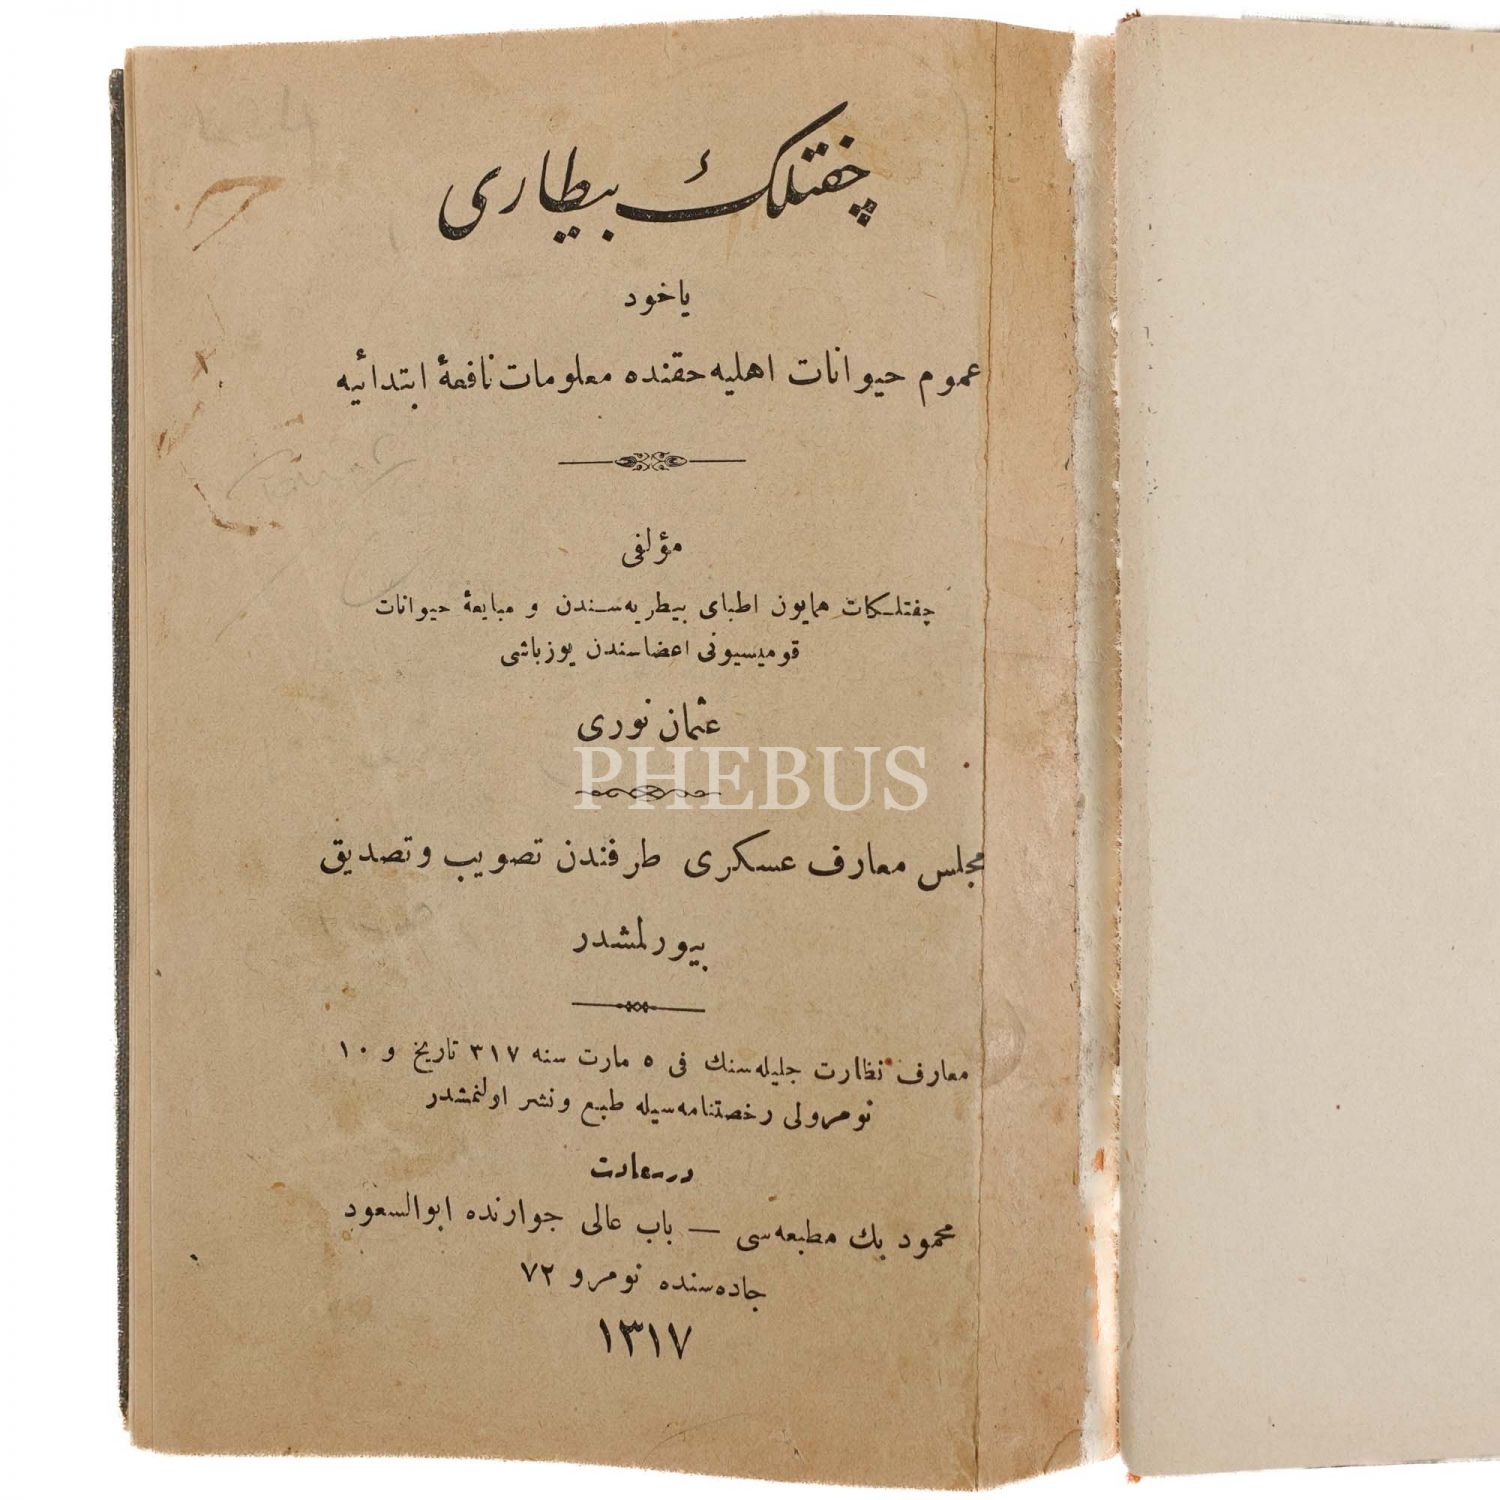 چفتلك بيطاری
ياخود
عموم حيوانات اهليه حقنده معلومات نافعۀ ابتدائيه
مؤلفی
چفتلكات همايون اطبای بيطريه‌سندن و مبايعۀ حيوانات
قوميسيونی اعضاسندن يوزباشی
عثمان نوری
PHEBUS
مجلس معارف عسكری طرفندن تصويب وتصديق
بيورلمشدر
معارف نظارت جليله‌سنك فی ٥ مارت سنه ٣١٧ تاريخ و ١٠
نومرولی رخصتنامه‌سيله طبع ونشر اولنمشدر
درسعادت
محمود بك مطبعه‌سی — باب عالی جوارنده ابوالسعود
جاده‌سنده نومرو ٧٢
١٣١٧